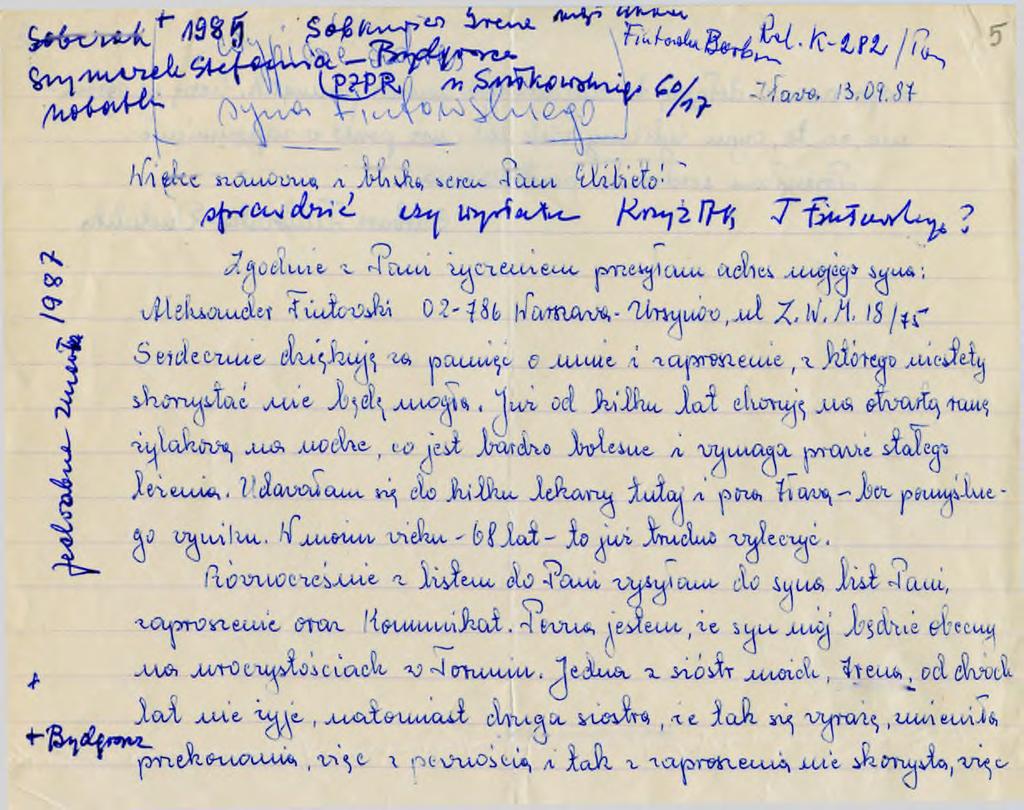 Sobczak + 1985 Sobkuwicz Irena
Fiutowska Barbara Rel. K-282/Pom 5
Szymarek Stefania - Bydgoszcz
PZPR u Sułkowskiego 60/17 Iława 13.09.87
syna Fiutowskiego
Wielce szanowna i bliska sercu Pani Elżbieto!
sprawdzić czy wysłała Krzyż AK J Fiutowskiego?
Zgodnie z Pani życzeniem przesyłam adres mojego syna:
Aleksander Fiutowski 02-786 Warszawa-Ursynów, ul Z.W.M. 18/75
Serdecznie dziękuję za pamięć o mnie i zaproszenie, z którego niestety
skorzystać nie będę mogła. Już od kilku lat choruję na otwartą ranę
żylakową na nodze, co jest bardzo bolesne i wymaga prawie stałego
leżenia. Udawałam się do kilku lekarzy tutaj i poza Iławą - bez pomyślne-
go wyniku. W moim wieku - 68 lat - to już trudno wyleczyć.
Równocześnie z listem do Pani wysyłam do syna list Pani,
zaproszenie oraz Komunikat. Pewna jestem, że syn mój będzie obecny
na uroczystościach w Toruniu. Jedna z sióstr moich, Irena, od dwóch
lat nie żyje, natomiast druga siostra, że tak się wyrażę, zmieniła
przekonania, więc z pewnością i tak z zaproszenia nie skorzysta, więc
1987
+
+ Bydgoszcz